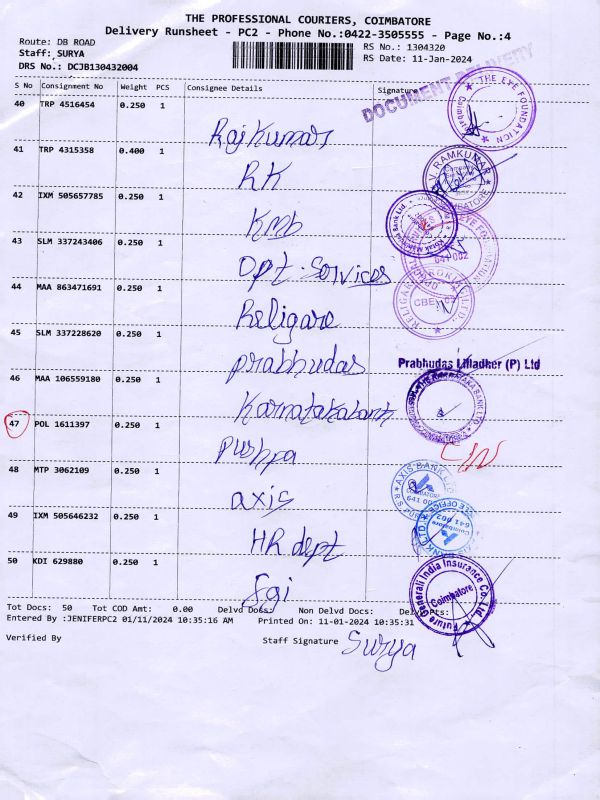 THE PROFESSIONAL COURIERS, COIMBATORE
Delivery Runsheet - PC2 - Phone No.:0422-3505555 - Page No.:4
Route: DB ROAD
RS No.: 1304320
Staff: SURYA
RS Date: 11-Jan-2024
DRS No.: DCJB130432004
DOCUMENT DELIVERY
S No Consignment No Weight PCS Consignee Details Signature
40 TRP 4516454 0.250 1 Rajkumar
THE EYE FOUNDATION
41 TRP 4315358 0.400 1 RK
V. RAMKUMAR
42 IXM 505657785 0.250 1 KMB
Kotak Mahindra Bank Ltd.
43 SLM 337243406 0.250 1 Opt. Services
641 002
44 MAA 863471691 0.250 1 Religare
RELIGARE BROKING LTD.
45 SLM 337228620 0.250 1 prabhudas
Prabhudas Lilladher (P) Ltd
46 MAA 106559180 0.250 1 Karnatakabank
KARNATAKA BANK LTD.
47 POL 1611397 0.250 1 pushpa
48 MTP 3062109 0.250 1 axis
AXIS BANK LTD
COIMBATORE
641 002
49 IXM 505646232 0.250 1 HR dept
641 002
Coimbatore
50 KDI 629880 0.250 1 Fgi
Future Generali India Insurance Co. Ltd.
Coimbatore
Tot Docs: 50 Tot COD Amt: 0.00 Delvd Docs: Non Delvd Docs: Delvd Wts:
Entered By :JENIFERPC2 01/11/2024 10:35:16 AM Printed On: 11-01-2024 10:35:31
Verified By Staff Signature Surya